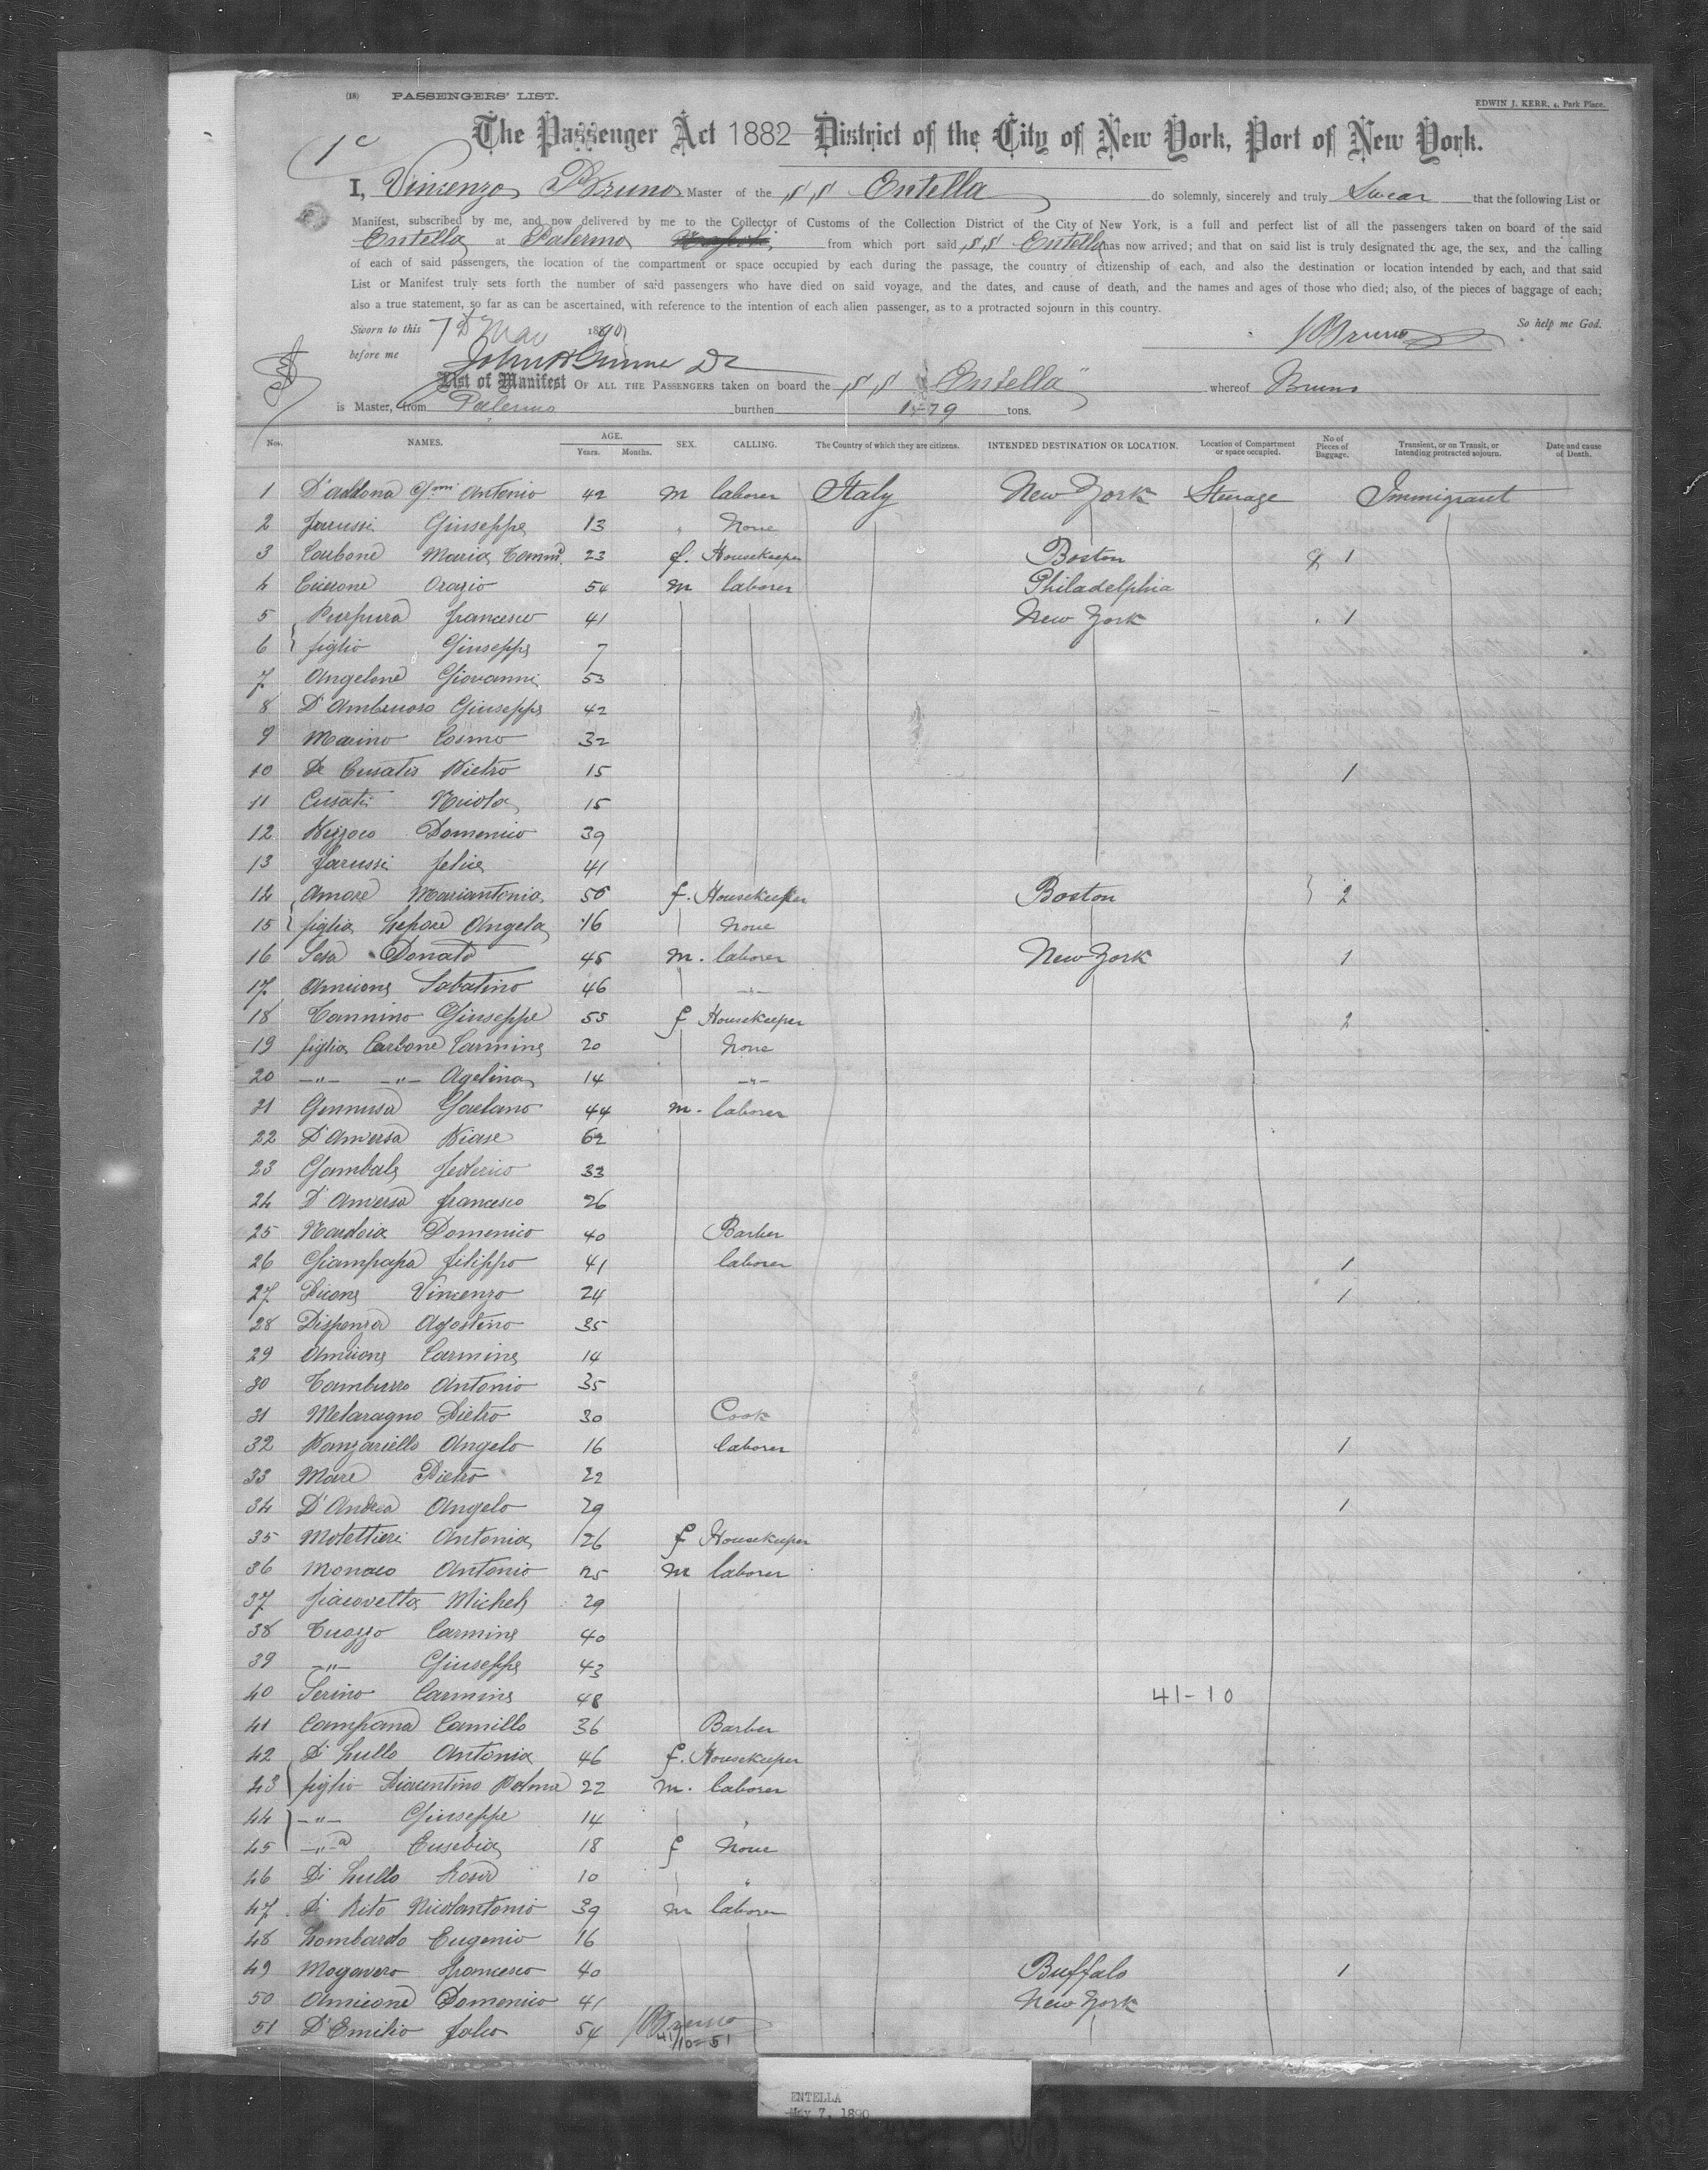 (18) PASSENGERS' LIST.
EDWIN J. KERR, 4, Park Place.
1c
The Passenger Act 1882 District of the City of New York, Port of New York.
I, Vincenzo Bruno Master of the S,S Entella do solemnly, sincerely and truly Swear that the following List or
Manifest, subscribed by me, and now delivered by me to the Collector of Customs of the Collection District of the City of New York, is a full and perfect list of all the passengers taken on board of the said
Entella at Palermo from which port said S,S Entella has now arrived; and that on said list is truly designated the age, the sex, and the calling
of each of said passengers, the location of the compartment or space occupied by each during the passage, the country of citizenship of each, and also the destination or location intended by each, and that said
List or Manifest truly sets forth the number of said passengers who have died on said voyage, and the dates, and cause of death, and the names and ages of those who died; also, of the pieces of baggage of each;
also a true statement, so far as can be ascertained, with reference to the intention of each alien passenger, as to a protracted sojourn in this country.
Sworn to this 7 May 1890 So help me God.
before me VBruno
List of Manifest OF ALL THE PASSENGERS taken on board the S,S Entella" whereof Bruno
is Master, from Palermo burthen tons.
Nos. NAMES. AGE. Years. Months. SEX. CALLING. The Country of which they are citizens. INTENDED DESTINATION OR LOCATION. Location of Compartment or space occupied. No of Pieces of Baggage. Transient, or on Transit, or Intending protracted sojourn. Date and cause of Death.
1 D'addona Gmi Antonio 42 m laborer Italy New York Steerage Immigrant
2 Farussi Giuseppe 13 " None
3 Carbone Maria 23 f. Housekeeper Boston 1
4 Ciccone Orazio 54 m laborer Philadelphia
5 Purpura Francesco 41 New York 1
6 figlio Giuseppe 7
7 Angelone Giovanni 53
8 D'Ambruoso Giuseppe 42
9 Marino Cosmo 32
10 De Cusatis Pietro 15 1
11 Cusati Nicola 15
12 Domenico 39
13 Farussi Felice 41
14 Amore Mariantonia 50 f. Housekeeper Boston 2
15 figlia Lepore Angela 16 None
16 Sesa Donato 45 m. laborer New York 1
17 Amicone Sabatino 46 -"-
18 Tannino Giuseppe 55 f Housekeeper 2
19 figlia Carbone Carmine 20 None
20 -"- -"- Agelina 14 -"-
21 Gennusa Gaetano 44 m. laborer
22 D'Anversa Biase 62
23 Gambale Federico 33
24 D'Anversa Francesco 26
25 Nardoia Domenico 40 Barber
26 Giampapa Filippo 41 laborer 1
27 Vincenzo 24 1
28 Dispensa Agostino 35
29 Amicone Carmine 14
30 Tamburro Antonio 35
31 Melaragno Pietro 30 Cook
32 Panzariello Angelo 16 laborer 1
33 Mare Pietro 22
34 D'Andrea Angelo 29 1
35 Molettieri Antonia 26 f Housekeeper
36 Monaco Antonio 25 m laborer
37 Fiacovetta Michele 29
38 Tuozzo Carmine 40
39 -"- Giuseppe 43
40 Serino Carmine 48 41-10
41 Campana Camillo 36 Barber
42 Di Lullo Antonia 46 f. Housekeeper
43 figlio Piacentino 22 m. laborer
44 -"- Giuseppe 14 "
45 -"-a Eusebia 18 f None
46 Di Lullo Rosa 10 "
47 Di Rito Nicolantonio 39 m laborer
48 Lombardo Eugenio 16
49 Mogavero Francesco 40 Buffalo 1
50 Amicone Domenico 41 New York
51 D'Emilio Falco 54 VBruno
41/10=51
ENTELLA
May 7, 1890